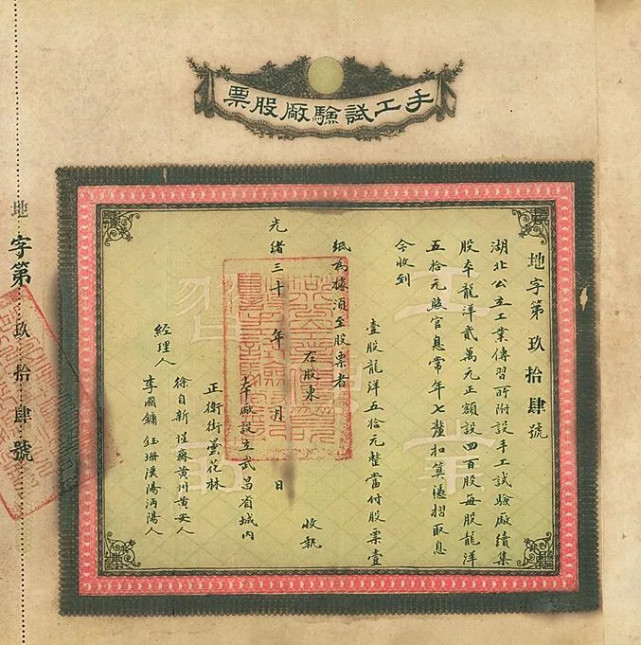 手工試驗廠股票
地字第玖拾肆號
湖北公立工業傳習所附設手工試驗廠續集
股本龍洋貳萬元正額設四百股每股龍洋
五拾元照官息常年七釐扣算憑摺取息
今收到
壹股龍洋五拾元整當付股票壹
紙為據須至股票者
右股東
收執
光緒三十年月日
本廠設立武昌省城內
正衛街曇花林
經理人
徐自新蘇黃州黃安人
李國鏞珊漢陽沔陽人
地字第玖拾肆號
工業